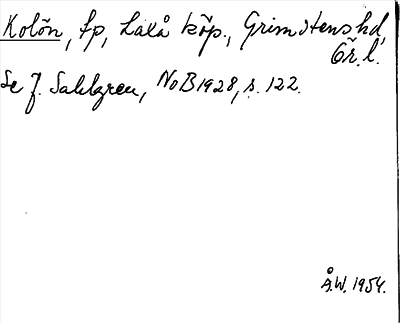 Kolön, tp, Laxå köp., Grimstens hd,
Ör. l.
Se J. Sahlgren, NoB 1928, s. 122.
Å.W. 1954.